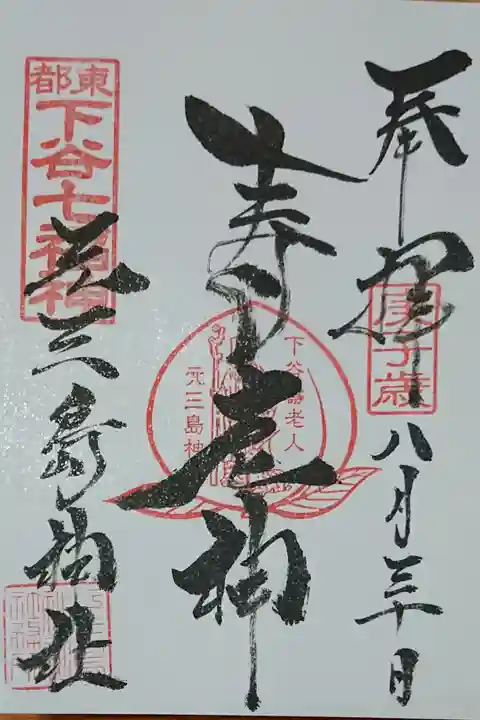 奉拝
八月三十日
寿老神
元三島神社
東都
下谷七福神
庚子歳
下谷寿老人
元三島神